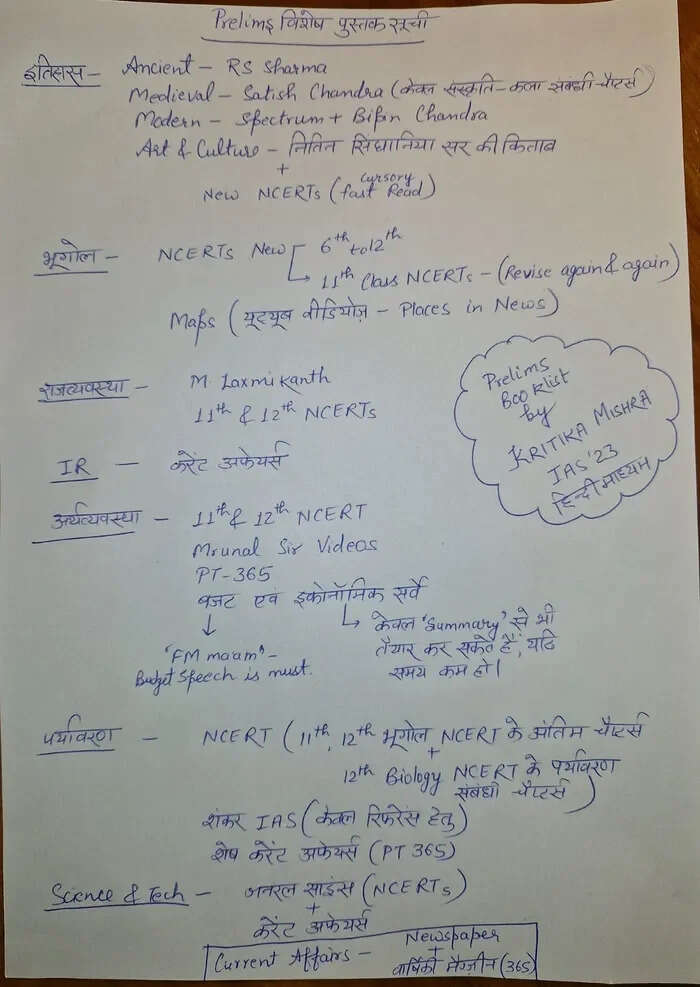 Prelims विशेष पुस्तक सूची
इतिहास - Ancient - RS Sharma
Medieval - Satish Chandra (केवल संस्कृति-कला संबंधी चैप्टर्स)
Modern - Spectrum + Bipan Chandra
Art & Culture - नितिन सिंघानिया सर की किताब
+
New NCERTs (cursory fast Read)
भूगोल - NCERTs New 6th to 12th
11th Class NCERTs - (Revise again & again)
Maps (यूट्यूब वीडियोज़ - Places in News)
राजव्यवस्था - M. Laxmikanth
11th & 12th NCERTs
Prelims
Booklist
by
KRITIKA MISHRA
IAS'23
हिन्दी माध्यम
IR - करेंट अफेयर्स
अर्थव्यवस्था - 11th & 12th NCERT
Mrunal Sir Videos
PT-365
बजट एवं इकोनॉमिक सर्वे
केवल 'Summary' से भी
तैयार कर सकते हैं, यदि
समय कम हो।
'FM maam' -
Budget Speech is must.
पर्यावरण - NCERT (11th, 12th भूगोल NCERT के अंतिम चैप्टर्स
+
12th Biology NCERT के पर्यावरण
संबंधी चैप्टर्स)
शंकर IAS (केवल रिफरेंस हेतु)
शेष करेंट अफेयर्स (PT 365)
Science & Tech - जनरल साइंस (NCERTs)
+
करेंट अफेयर्स
Current Affairs - Newspaper
+
वार्षिकी मैग्ज़ीन (365)